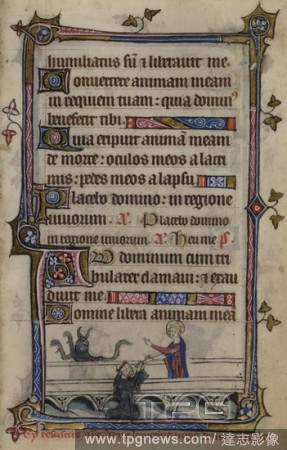 humiliatus sū ⁊ liberauit me
Conuertere animam meam
in requiem tuam : quia domin⁹
benefecit tibi
Quia eripuit animā meam
de morte : oculos meos a lacri
mis : pedes meos a lapsu
Placebo domino : in regione
uiuorum. A. Placebo domino
in regione uiuorum. A. Heu me ps.
Ad dominum cum tri
bularer clamaui : ⁊ exau
diuit me.
Domine libera animam mea
TPG
www.tpgnews.com / 達志影像